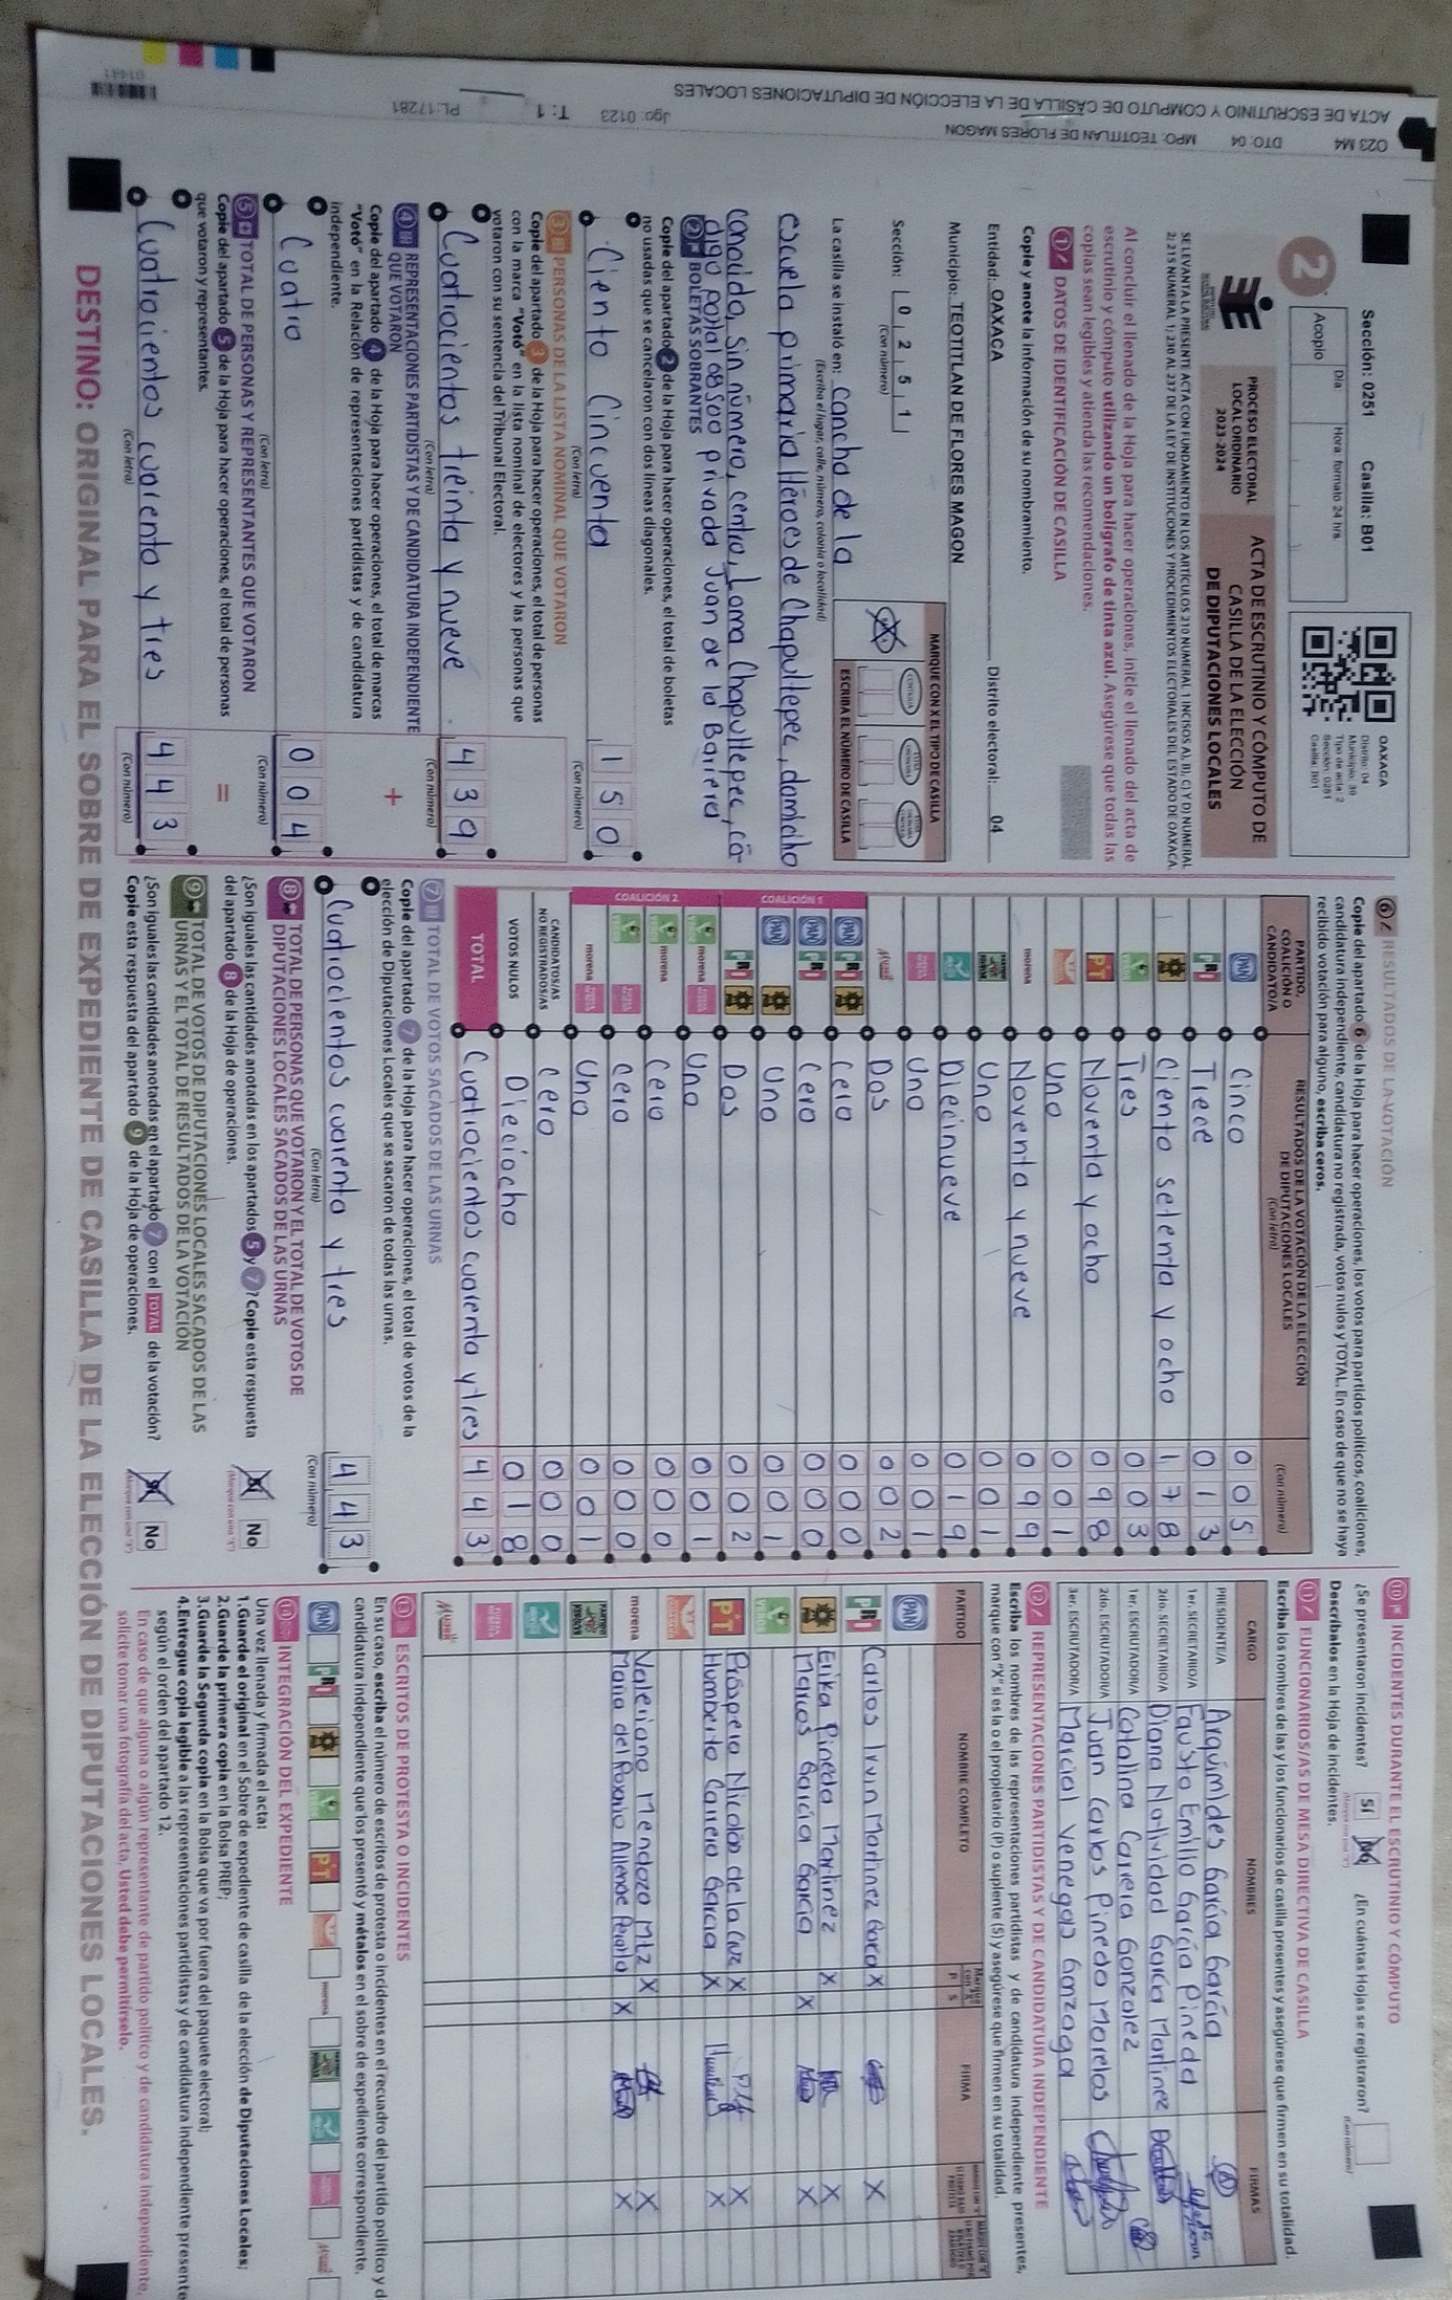 Sección: 0251 Casilla: B01
Día: Hora: formato 24 hrs.
Acopio
2
OAXACA
Distrito: 04
Municipio: 39
Tipo de acta: 2
Sección: 0251
Casilla: B01
PROCESO ELECTORAL
LOCAL ORDINARIO
2023-2024
ACTA DE ESCRUTINIO Y CÓMPUTO DE
CASILLA DE LA ELECCIÓN
DE DIPUTACIONES LOCALES
SE LEVANTA LA PRESENTE ACTA CON FUNDAMENTO EN LOS ARTÍCULOS 210 NUMERAL 1 INCISOS A), B), C) Y D) NUMERAL
2; 215 NUMERAL 1; 230 AL 237 DE LA LEY DE INSTITUCIONES Y PROCEDIMIENTOS ELECTORALES DEL ESTADO DE OAXACA.
Al concluir el llenado de la Hoja para hacer operaciones, inicie el llenado del acta de
escrutinio y cómputo utilizando un bolígrafo de tinta azul. Asegúrese que todas las
copias sean legibles y atienda las recomendaciones.
1 DATOS DE IDENTIFICACIÓN DE CASILLA
Copie y anote la información de su nombramiento.
Entidad: OAXACA Distrito electoral: 04
Municipio: TEOTITLAN DE FLORES MAGON
Sección: 0 2 5 1
(Con número)
MARQUE CON X EL TIPO DE CASILLA
ESCRIBA EL NÚMERO DE CASILLA
La casilla se instaló en: Cancha de la
(Escriba el lugar, calle, número, colonia o localidad)
escuela primaria Héroes de Chapultepec, domicilio
conocido, sin número, centro, Loma Chapultepec, co-
digo postal 68500 privada Juan de la Barrera
2 BOLETAS SOBRANTES
Copie del apartado 2 de la Hoja para hacer operaciones, el total de boletas
no usadas que se cancelaron con dos líneas diagonales.
Ciento Cincuenta 1 5 0
(Con letra) (Con número)
3 PERSONAS DE LA LISTA NOMINAL QUE VOTARON
Copie del apartado 3 de la Hoja para hacer operaciones, el total de personas
con la marca "Votó" en la lista nominal de electores y las personas que
votaron con su sentencia del Tribunal Electoral.
Cuatrocientos treinta y nueve 4 3 9
(Con letra) (Con número)
4 REPRESENTACIONES PARTIDISTAS Y DE CANDIDATURA INDEPENDIENTE
QUE VOTARON
Copie del apartado 4 de la Hoja para hacer operaciones, el total de marcas
"Votó" en la Relación de representaciones partidistas y de candidatura
independiente.
+
Cuatro 0 0 4
(Con letra) (Con número)
5 TOTAL DE PERSONAS Y REPRESENTANTES QUE VOTARON
Copie del apartado 5 de la Hoja para hacer operaciones, el total de personas
que votaron y representantes.
=
Cuatrocientos cuarenta y tres 4 4 3
(Con letra) (Con número)
6 RESULTADOS DE LA VOTACIÓN
Copie del apartado 6 de la Hoja para hacer operaciones, los votos para partidos políticos, coaliciones,
candidatura independiente, candidatura no registrada, votos nulos y TOTAL. En caso de que no se haya
recibido votación para alguno, escriba ceros.
PARTIDO,
COALICIÓN O
CANDIDATO/A
RESULTADOS DE LA VOTACIÓN DE LA ELECCIÓN
DE DIPUTACIONES LOCALES
(Con letra) (Con número)
PAN Cinco 0 0 5
PRI Trece 0 1 3
Ciento setenta y ocho 1 7 8
VERDE Tres 0 0 3
PT Noventa y ocho 0 9 8
Uno 0 0 1
morena Noventa y nueve 0 9 9
Uno 0 0 1
Diecinueve 0 1 9
Uno 0 0 1
Dos 0 0 2
COALICIÓN 1
PAN PRI Cero 0 0 0
PAN PRI Cero 0 0 0
PAN Uno 0 0 1
PRI Dos 0 0 2
COALICIÓN 2
morena Uno 0 0 1
morena Cero 0 0 0
Cero 0 0 0
morena Uno 0 0 1
CANDIDATOS/AS
NO REGISTRADOS/AS Cero 0 0 0
VOTOS NULOS Dieciocho 0 1 8
TOTAL Cuatrocientos cuarenta y tres 4 4 3
7 TOTAL DE VOTOS SACADOS DE LAS URNAS
Copie del apartado 7 de la Hoja para hacer operaciones, el total de votos de la
elección de Diputaciones Locales que se sacaron de todas las urnas.
Cuatrocientos cuarenta y tres 4 4 3
(Con letra) (Con número)
8 TOTAL DE PERSONAS QUE VOTARON Y EL TOTAL DE VOTOS DE
DIPUTACIONES LOCALES SACADOS DE LAS URNAS
¿Son iguales las cantidades anotadas en los apartados 5 y 7? Copie esta respuesta
del apartado 8 de la Hoja de operaciones.
Sí No
9 TOTAL DE VOTOS DE DIPUTACIONES LOCALES SACADOS DE LAS
URNAS Y EL TOTAL DE RESULTADOS DE LA VOTACIÓN
¿Son iguales las cantidades anotadas en el apartado 7 con el TOTAL de la votación?
Copie esta respuesta del apartado 9 de la Hoja de operaciones.
Sí No
10 INCIDENTES DURANTE EL ESCRUTINIO Y CÓMPUTO
¿Se presentaron incidentes? Sí No ¿En cuántas Hojas se registraron?
Descríbalos en la Hoja de incidentes.
11 FUNCIONARIOS/AS DE MESA DIRECTIVA DE CASILLA
Escriba los nombres de las y los funcionarios de casilla presentes y asegúrese que firmen en su totalidad.
CARGO NOMBRES FIRMAS
PRESIDENTE/A Arquímides García García
1er. SECRETARIO/A Fausto Emilio García Pineda
2do. SECRETARIO/A Diana Natividad García Martinez
1er. ESCRUTADOR/A Catalina Carrera Gonzalez
2do. ESCRUTADOR/A Juan Carlos Pineda Morelos
3er. ESCRUTADOR/A Marcial Venegas Gonzaga
12 REPRESENTACIONES PARTIDISTAS Y DE CANDIDATURA INDEPENDIENTE
Escriba los nombres de las representaciones partidistas y de candidatura independiente presentes,
marque con "X" si es la o el propietario (P) o suplente (S) y asegúrese que firmen en su totalidad.
PARTIDO NOMBRE COMPLETO P S FIRMA
PAN
PRI Carlos Irvin Martinez X X
Erika Pineda Martinez X X
Marcos García García X X
VERDE
PT Próspero Nicolás de la Cruz X X
Humberto Carrera García X X
morena Valeriano Mendoza Mtz X X
Maria del Rosario Allende X X
13 ESCRITOS DE PROTESTA O INCIDENTES
En su caso, escriba el número de escritos de protesta o incidentes en el recuadro del partido político y d
candidatura independiente que los presentó y métalos en el sobre de expediente correspondiente.
PAN PRI VERDE PT morena
14 INTEGRACIÓN DEL EXPEDIENTE
Una vez llenada y firmada el acta:
1.Guarde el original en el Sobre de expediente de casilla de la elección de Diputaciones Locales;
2.Guarde la primera copia en la Bolsa PREP;
3.Guarde la Segunda copia en la Bolsa que va por fuera del paquete electoral;
4.Entregue copia legible a las representaciones partidistas y de candidatura independiente presente
según el orden del apartado 12.
En caso de que alguna o algún representante de partido político y de candidatura independiente,
solicite tomar una fotografía del acta, Usted debe permitírselo.
DESTINO: ORIGINAL PARA EL SOBRE DE EXPEDIENTE DE CASILLA DE LA ELECCIÓN DE DIPUTACIONES LOCALES.
023 M4 DTO: 04 MPO: TEOTITLAN DE FLORES MAGON
ACTA DE ESCRUTINIO Y COMPUTO DE CASILLA DE LA ELECCIÓN DE DIPUTACIONES LOCALES
Jgo: 0123 T: 1 PL:17281
01441